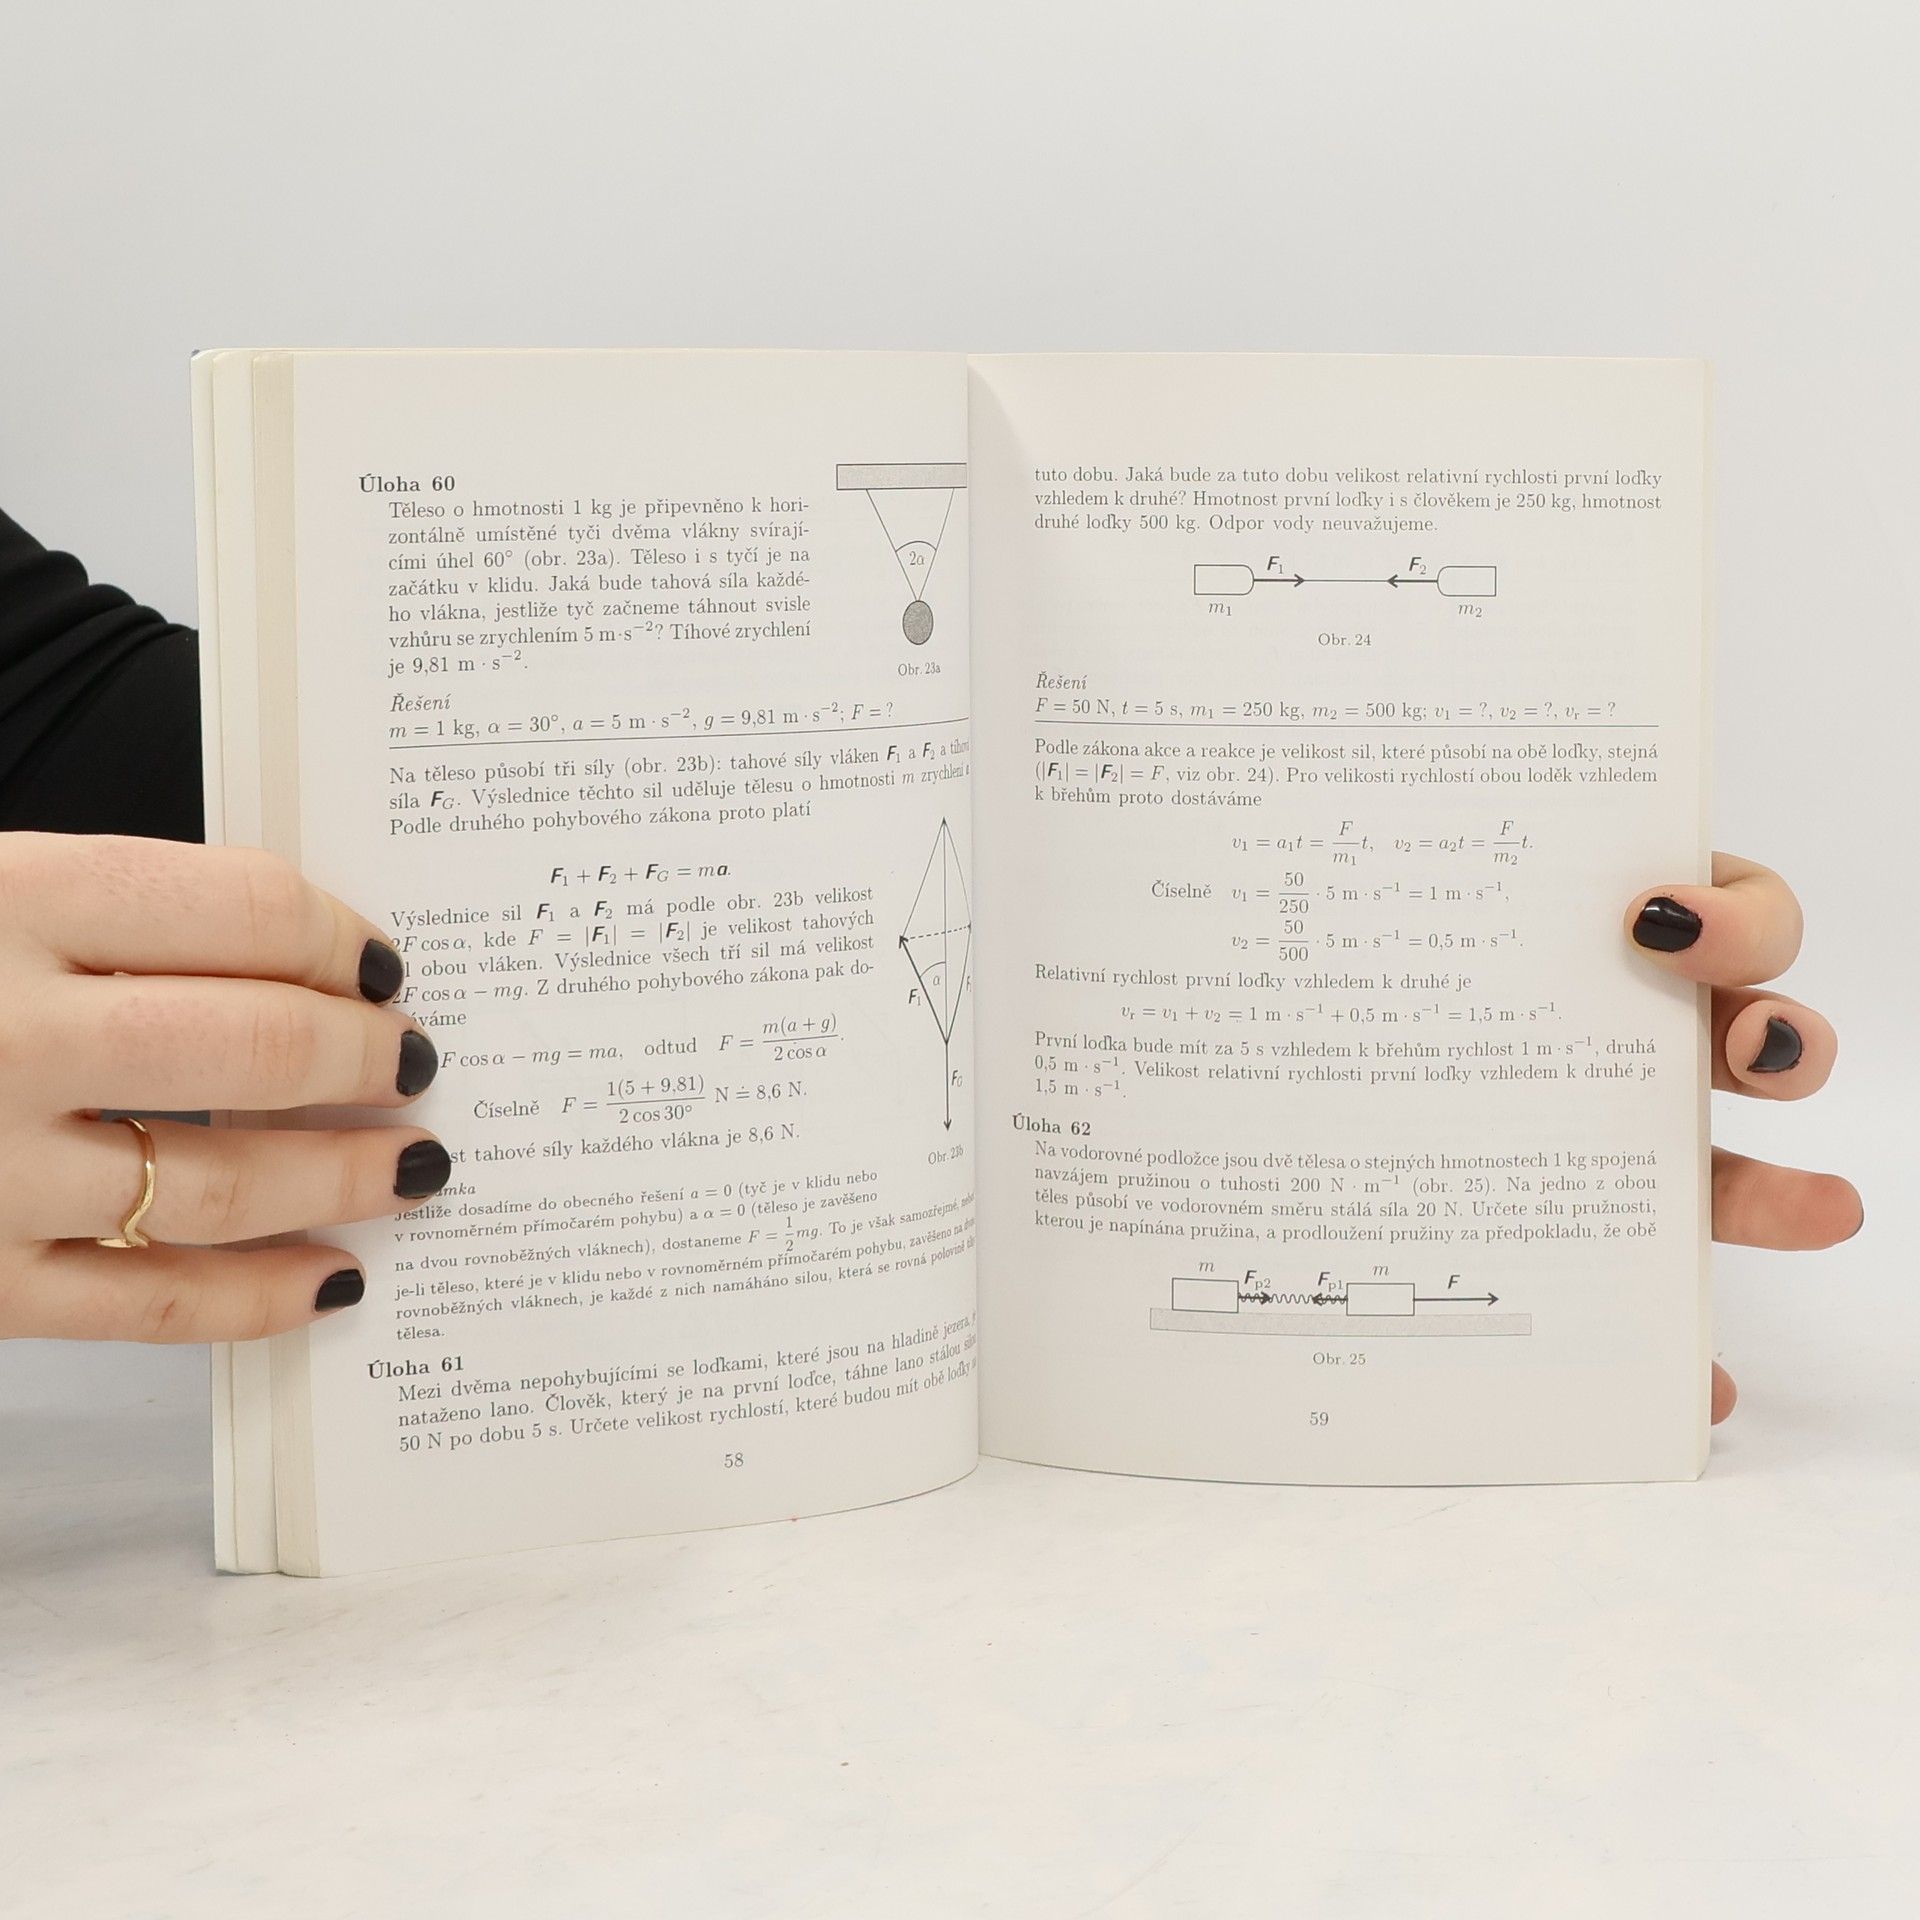 Úloha 60
Těleso o hmotnosti 1 kg je připevněno k hori-
zontálně umístěné tyči dvěma vlákny svírají-
cími úhel 60° (obr. 23a). Těleso i s tyčí je na
začátku v klidu. Jaká bude tahová síla každé-
ho vlákna, jestliže tyč začneme táhnout svisle
vzhůru se zrychlením 5 m·s⁻²? Tíhové zrychlení
je 9,81 m · s⁻².
2α
Obr. 23a
Řešení
m = 1 kg, α = 30°, a = 5 m · s⁻², g = 9,81 m · s⁻²; F = ?
Na těleso působí tři síly (obr. 23b): tahové síly vláken F₁ a F₂ a
síla F_G. Výslednice těchto sil uděluje tělesu o hmotnosti m zrychlení
Podle druhého pohybového zákona proto platí
F₁ + F₂ + F_G = ma.
Výslednice sil F₁ a F₂ má podle obr. 23b velikost
2F cos α, kde F = |F₁| = |F₂| je velikost tahových
obou vláken. Výslednice všech tří sil má velikost
2F cos α − mg. Z druhého pohybového zákona pak do-
váme
F cos α − mg = ma, odtud F = m(a + g) / 2 cos α.
Číselně F = 1(5 + 9,81) / 2 cos 30° N ≐ 8,6 N.
st tahové síly každého vlákna je 8,6 N.
α
F₁
F_G
Obr. 23b
mka
Jestliže dosadíme do obecného řešení a = 0 (tyč je v klidu nebo
v rovnoměrném přímočarém pohybu) a α = 0 (těleso je zavěšeno
na dvou rovnoběžných vláknech), dostaneme F = 1/2 mg. To je však samozřejmé,
je-li těleso, které je v klidu nebo v rovnoměrném přímočarém pohybu, zavěšeno na
rovnoběžných vláknech, je každé z nich namáháno silou, která se rovná polovině
tělesa.
Úloha 61
Mezi dvěma nepohybujícími se loďkami, které jsou na hladině jezera,
nataženo lano. Člověk, který je na první loďce, táhne lano stálou
50 N po dobu 5 s. Určete velikost rychlostí, které budou mít obě loďky
58
tuto dobu. Jaká bude za tuto dobu velikost relativní rychlosti první loďky
vzhledem k druhé? Hmotnost první loďky i s člověkem je 250 kg, hmotnost
druhé loďky 500 kg. Odpor vody neuvažujeme.
F₁ F₂
m₁ m₂
Obr. 24
Řešení
F = 50 N, t = 5 s, m₁ = 250 kg, m₂ = 500 kg; v₁ = ?, v₂ = ?, vᵣ = ?
Podle zákona akce a reakce je velikost sil, které působí na obě loďky, stejná
(|F₁| = |F₂| = F, viz obr. 24). Pro velikosti rychlostí obou loděk vzhledem
k břehům proto dostáváme
v₁ = a₁t = F/m₁ t, v₂ = a₂t = F/m₂ t.
Číselně v₁ = 50/250 · 5 m · s⁻¹ = 1 m · s⁻¹,
v₂ = 50/500 · 5 m · s⁻¹ = 0,5 m · s⁻¹.
Relativní rychlost první loďky vzhledem k druhé je
vᵣ = v₁ + v₂ = 1 m · s⁻¹ + 0,5 m · s⁻¹ = 1,5 m · s⁻¹.
První loďka bude mít za 5 s vzhledem k břehům rychlost 1 m · s⁻¹, druhá
0,5 m · s⁻¹. Velikost relativní rychlosti první loďky vzhledem k druhé je
1,5 m · s⁻¹.
Úloha 62
Na vodorovné podložce jsou dvě tělesa o stejných hmotnostech 1 kg spojená
navzájem pružinou o tuhosti 200 N · m⁻¹ (obr. 25). Na jedno z obou
těles působí ve vodorovném směru stálá síla 20 N. Určete sílu pružnosti,
kterou je napínána pružina, a prodloužení pružiny za předpokladu, že obě
m Fp2 Fp1 m F
Obr. 25
59